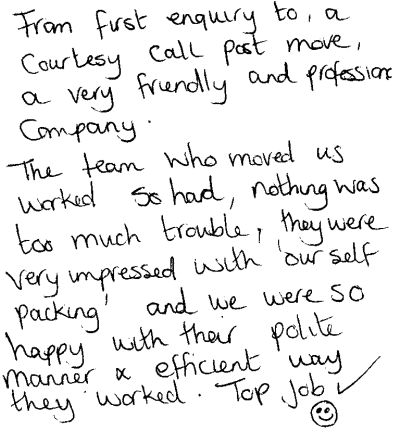 From first enquiry to, a
Courtesy call post move,
a very friendly and profession
Company.
The team who moved us
worked so had, nothing was
too much trouble, they were
very impressed with 'our self
packing' and we were so
happy with their polite
manner & efficient way
they worked. Top Job ✓